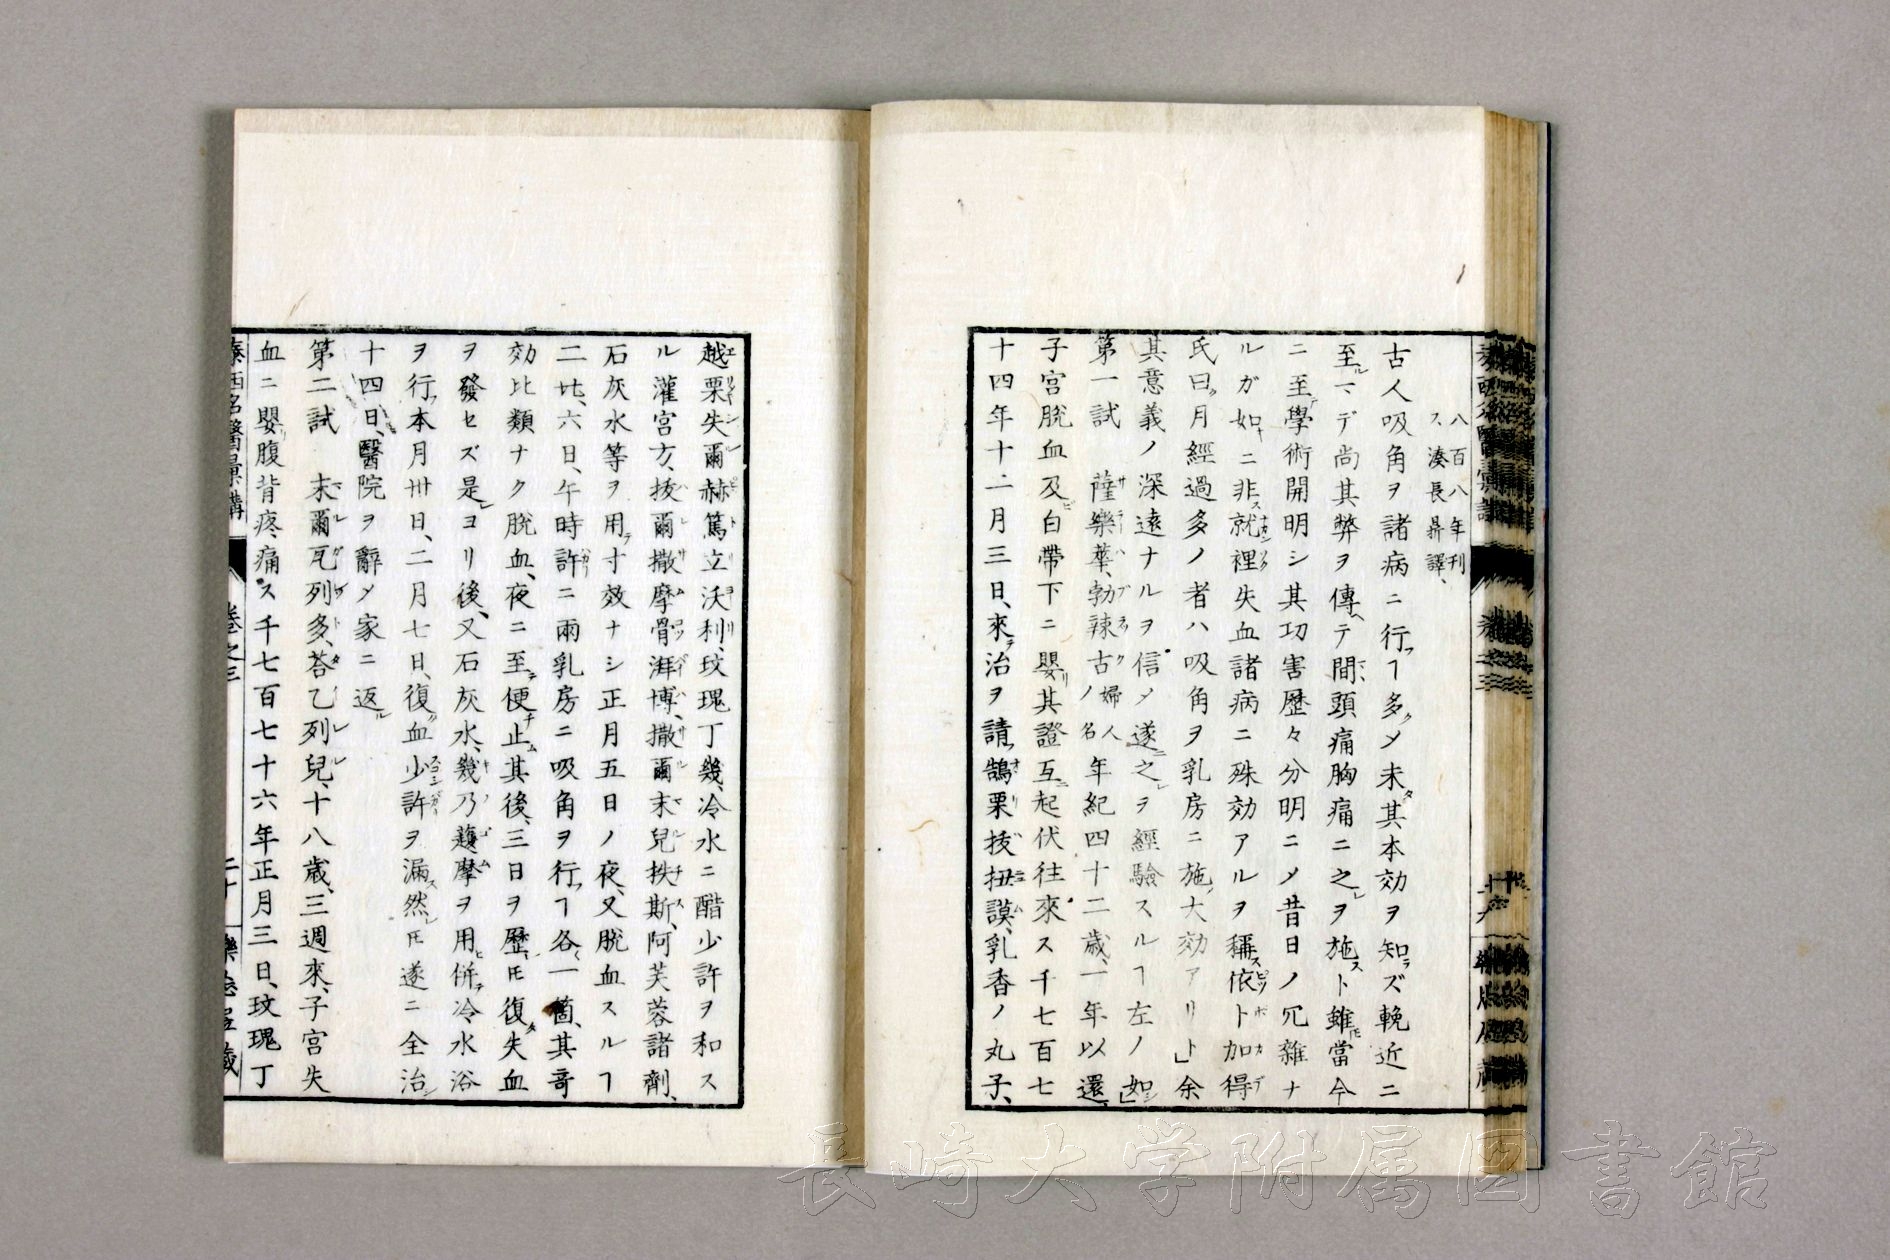 八百八年刊
ス、湊長昇譯、
古人吸角ヲ諸病ニ行フヿ多クメ未タ其本効ヲ知ラズ輓近ニ
至レマデ尚其弊ヲ傳ヘテ間頭痛胸痛ニ之レヲ施スト雖モ當今
ニ至テ學術開明シ其功害歴々分明ニメ昔日ノ冗雜ナ
ルガ如キニ非ス就裡失血諸病ニ殊効アルヲ稱ス依ト加得
氏曰ク月經過多ノ者ハ吸角ヲ乳房ニ施ノ大効アリト」余
其意義ノ深遠ナルヲ信メ遂ニ之レヲ經驗スルヿ左ノ如シ」
第一試 薩樂華、勃辣古ノ婦人名年紀四十二歳、一年以還、
子宮脱血及ビ白帶下ニ嬰リ其證互ニ起伏往來ス千七百七
十四年十二月三日、來テ治ヲ請フ鵠栗抜扭謨、乳香ノ丸子、
越栗失爾赫篤立沃利、玫瑰丁幾、冷水ニ醋少許ヲ和ス
ル灌宮方、抜爾撒摩骨湃博、撒爾末兒抶斯、阿芙蓉諸劑、
石灰水等ヲ用テ寸效ナシ正月五日ノ夜、又脱血スルヿ
二比、六日、午時許ニ兩乳房ニ吸角ヲ行フヿ各一箇、其奇
効比類ナク脱血、夜ニ至テ便チ止ム其後、三日ヲ歷レ𪜈復タ失血
ヲ發セズ是レヨリ後、又石灰水、幾乃、護摩ヲ用ヒ併テ冷水浴
ヲ行フ本月卅日、二月七日、復血少許ヲ漏ス然レ𪜈遂ニ全治シ
十四日、醫院ヲ辭メ家ニ返ル
第二試 末爾瓦列多、荅乙列兒、十八歳、三週來、子宮失
血ニ嬰リ腹背疼痛ス千七百七十六年正月三日、玫瑰丁
泰西名醫彙講 卷之三 二十
長崎大学附属図書館